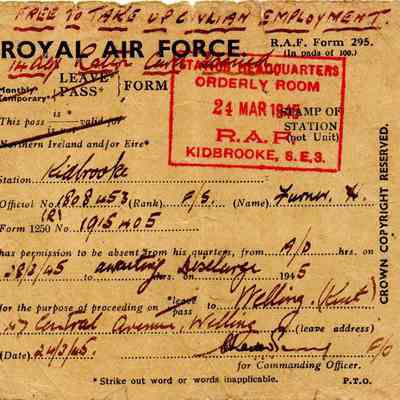 FREE TO TAKE UP CIVILIAN EMPLOYMENT.
ROYAL AIR FORCE.
R.A.F. Form 295.
(In pads of 100.)
Monthly
Temporary*
LEAVE
PASS*
FORM
STATION HEADQUARTERS
ORDERLY ROOM
24 MAR 1945
R.A.F.
KIDBROOKE, S.E.3.
STAMP OF
STATION
(not Unit)
is *
This pass valid for
is
Northern Ireland and/or Eire*
Station Kidbrooke
Official No. 808453 (Rank) F/S. (Name) Furner. H.
Form 1250 No. (R) 1915405
has permission to be absent from his quarters, from A/D hrs. on
28/3/45 to awaiting Discharge hrs. on 1945
for the purpose of proceeding on *leave
pass to Welling. (Kent)
47 Central Avenue, Welling (leave address)
(Date) 24/3/45. F/O
for Commanding Officer.
*Strike out word or words inapplicable. P.T.O.
CROWN COPYRIGHT RESERVED.